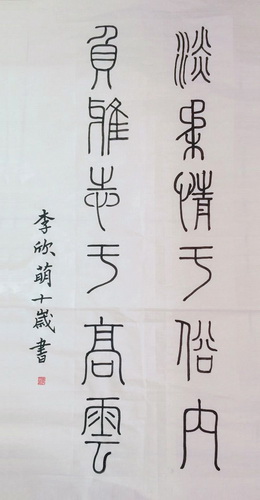 淡柔情于俗内
負雅志于高雲
李欣萌十歲書